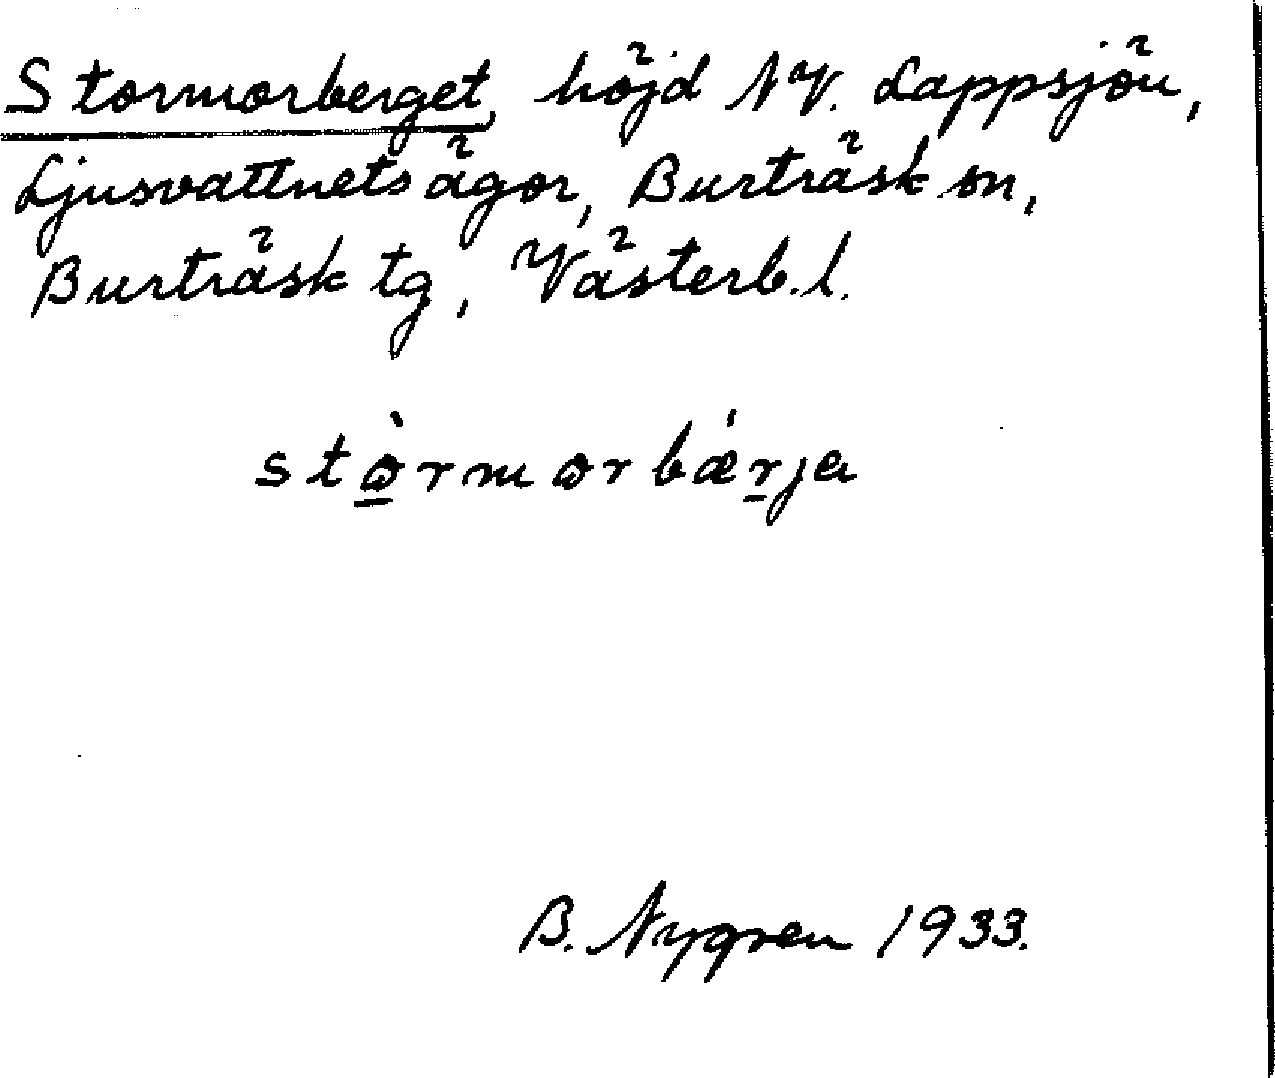 Stormorberget, höjd NV. Lappsjön,
Ljusvattnets ägor, Burträsk sn,
Burträsk tg, Västerb. l.
stòrmorbǽrja
B. Nygren 1933.